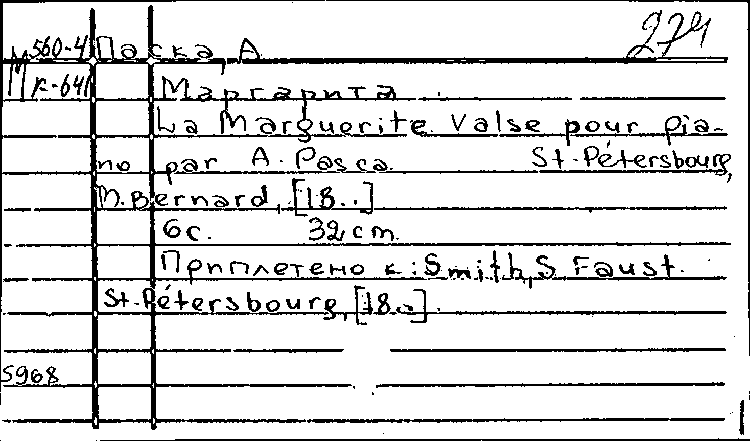 М 560-4 Паска, А 274
К-641 Маргарита.
La Marguerite. Valse pour pia-
no par A. Pasca. St.-Pétersbourg,
M. Bernard, [18..]
6с. 32 cm.
Приплетено к: Smith, S Faust.
St.-Pétersbourg, [18..].
5968